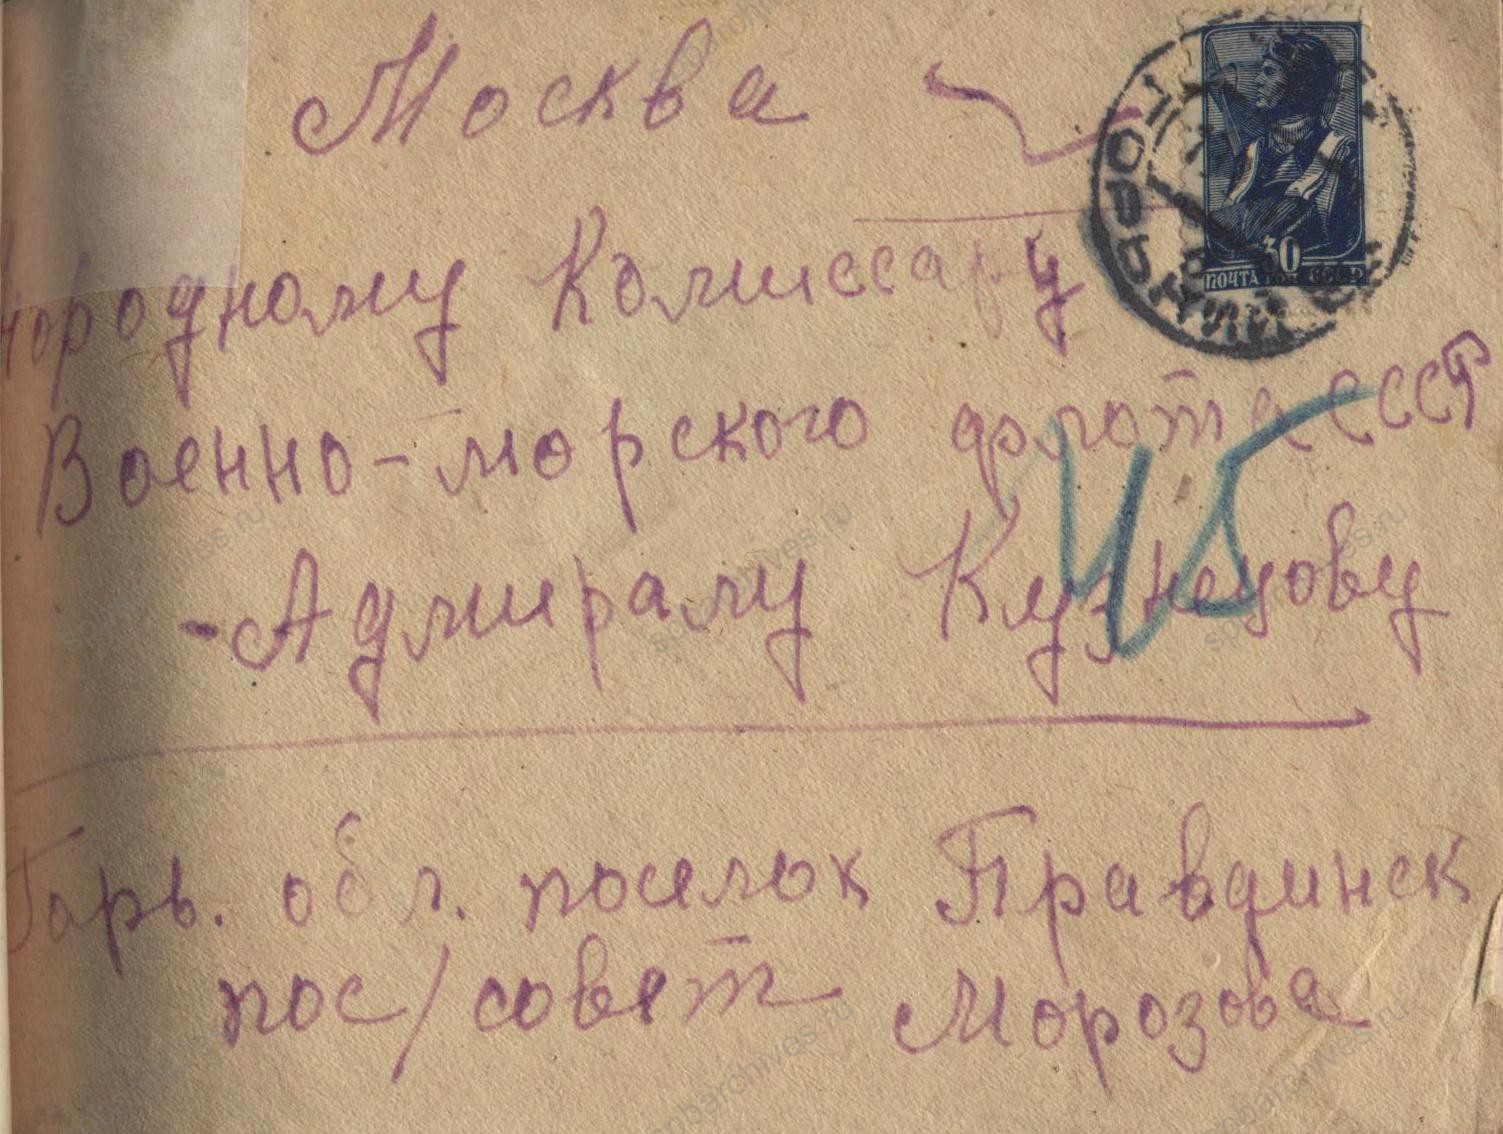 Москва
Народному Комиссару
Военно-морского флота СССР
Адмиралу Кузнецову
30
ПОЧТА СССР
Горьк. обл. поселок Правдинск
пос/совет Морозова
sobarchives.ru